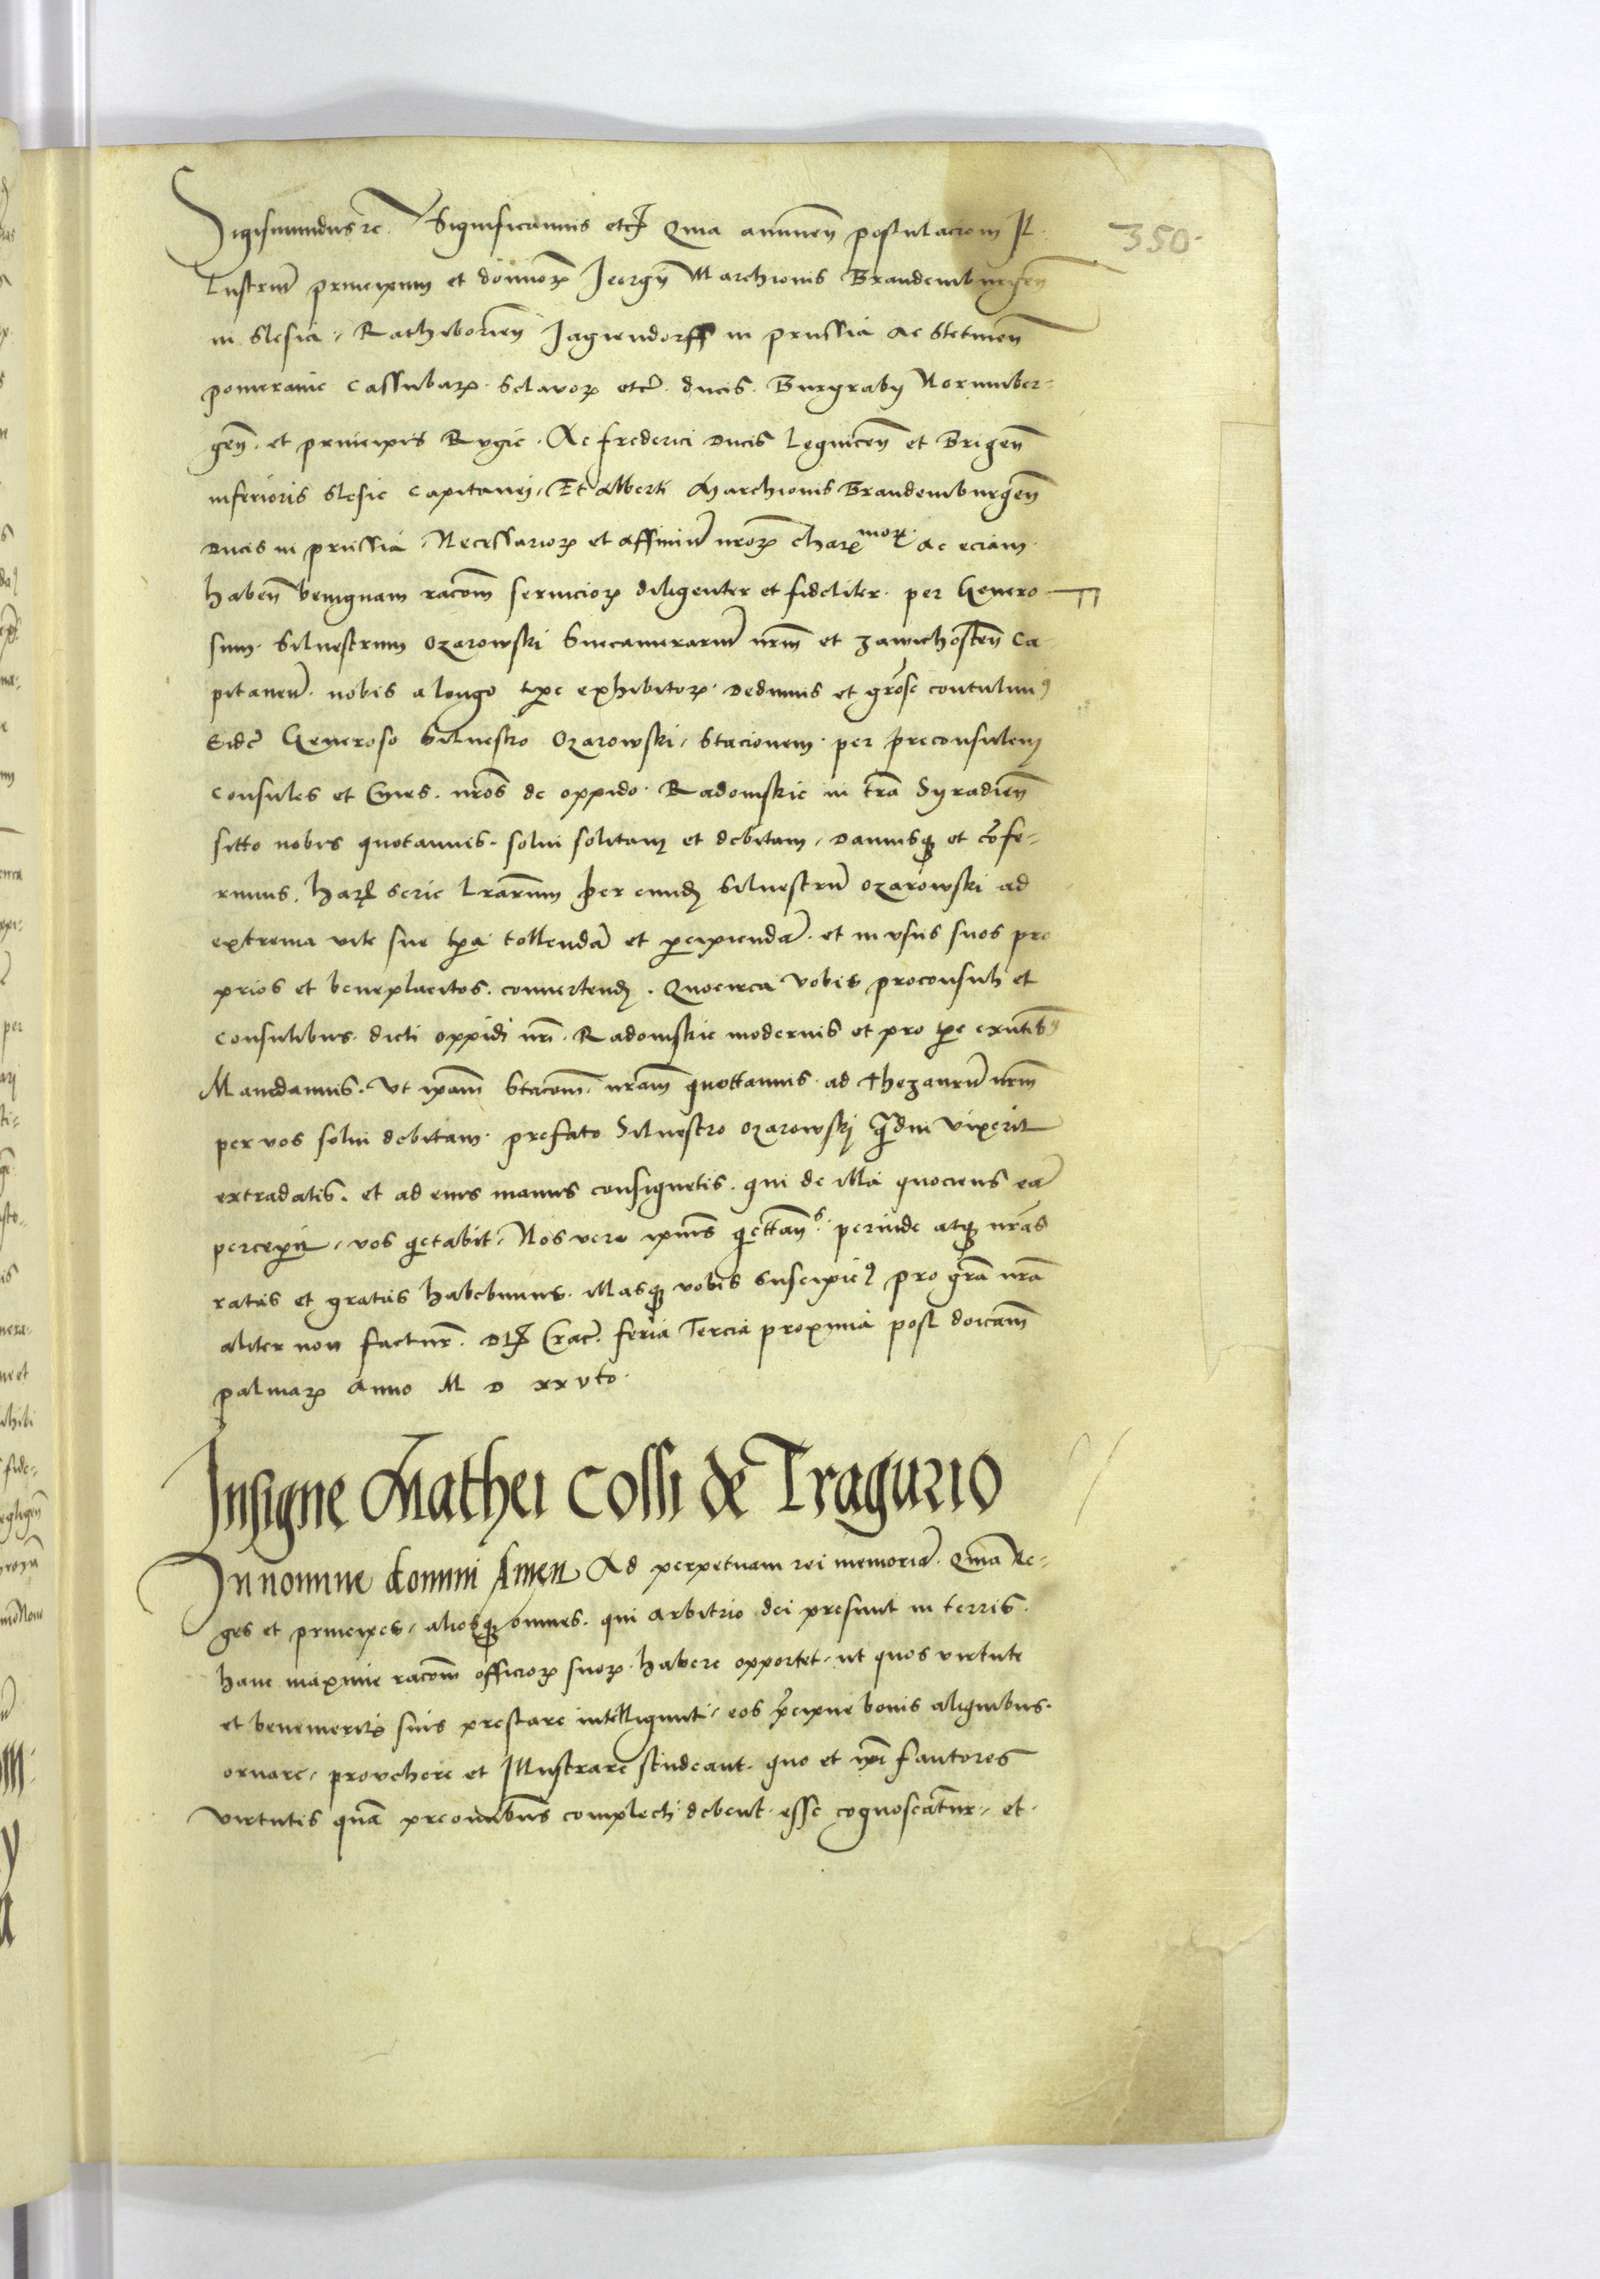 350.
Sigismundus etc. Significamus etc. Quia annuen̄ postulacioni Il
lustriū principum et dominorꝝ Jeorgii Marchionis Brandemburgen̄
in Slesia, Rathiborien̄ Jagiendorff in prussia ac Stetinen̄
pomeranie Cassubarꝝ Sclavorꝝ etc̄. ducis. Burgrabij Norinber-
gen̄. et principis Rugie. Ac frederici Ducis Legnicen̄ et Brigen̄
inferioris Slesie Capitanei, Et Alberti Marchionis Brandemburgen̄
Ducis in prussia, Necessariorꝝ et affiniū nr̄orꝝ charmorꝝ. ac eciam
haben̄ benignam rac̄om serviciorꝝ diligenter et fideliter per Genero
sum Silvestrum Ozarowski Succamerariū nr̄m et zawichosten̄ Ca
pitaneū. nobis a longo tp̄e exhibitorꝝ. Dedimus et gr̄ose contulimꝰ
Eidē Generoso Silvestro Ozarowski, Stacionem per preconsulem
consules et Cives nr̄os de oppido Radomskie in tr̄a Syradien̄
sitto nobis quotannis solvi solitam et debitam, Damusqꝫ et cōfe-
rimus harꝝ serie Lr̄arum per eundꝫ Silvestrū Ozarowski ad
extrema vite sue tp̄a tollendā et p̄cipiendā. et in usus suos pro
prios et beneplacitos convertendꝫ. Quocirca vobis proconsuli et
consulibus dicti oppidi nr̄i. Radomskie modernis et pro tp̄e exn̄tibꝰ
Mandamus. Ut ip̄am Stac̄om nr̄am quottannis ad Thezaurū nr̄m
per vos solvi debitam prefato Silvestro Ozarowskj q̄mdiu vixerit
extradatis. et ad eius manus consignetis. qui de illa quociens eā
perceperit, vos quietabit, Nos vero ip̄ius quiettan̄s perinde atqꝫ nr̄as
ratas et gratas habebimus. illasqꝫ vobis suscipiemꝰ pro gr̄a nr̄a
aliter non factur̄. Dtꝫ Crac̄. feria Tercia proxima post do͞icam
palmarꝝ Anno M D xxvto.
Insigne Mathei Cossi de Tragurio
In nomine domini Amen Ad perpetuam rei memoriā. Quia Re-
ges et principes, aliosqꝫ omnes qui arbitrio dei presunt in terris
hanc maxime rac̄om officiorꝝ suorꝝ habere opportet, ut quos virtute
et benemeritis suis prestare intelligunt, eos p̄cipue bonis alignibus
ornare, provehere et Illustrare studeant. quo et ip̄i fautores
virtutis quā pre omnibus complecti debent esse cognoscantur, et